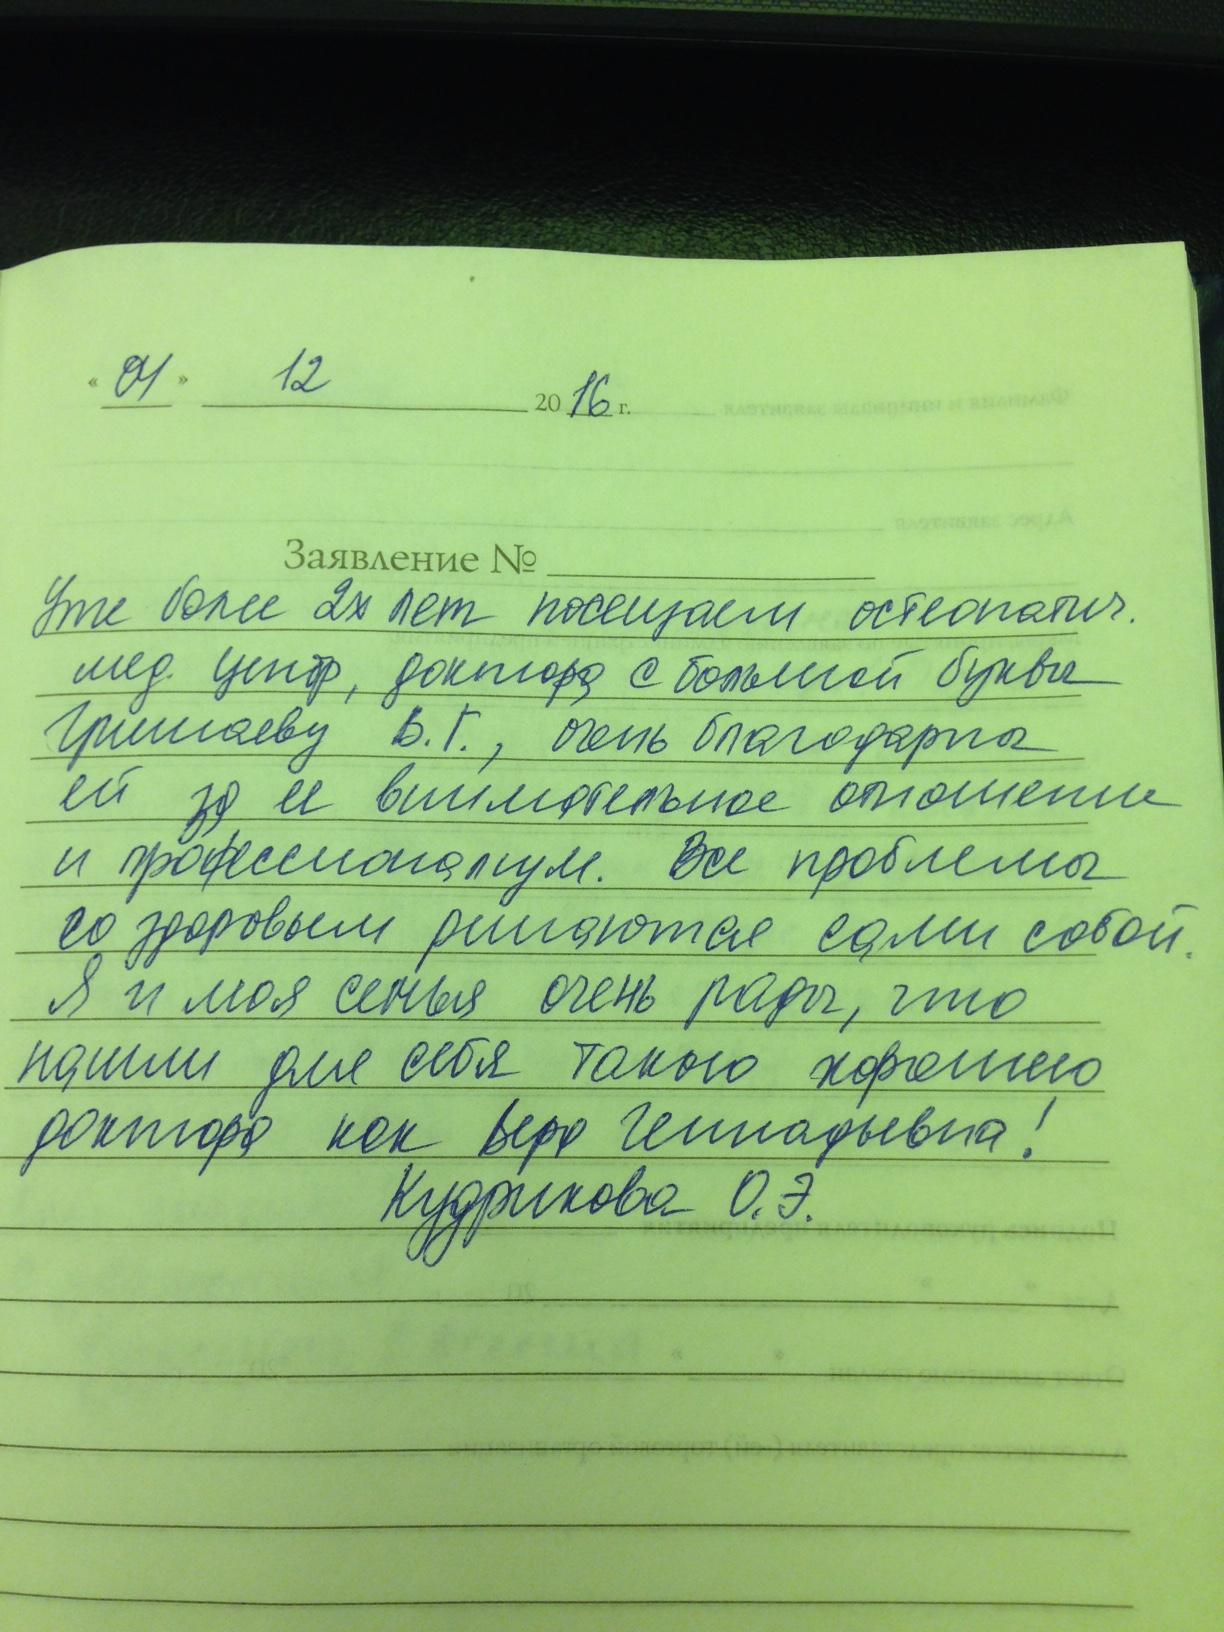 « 04 » 12 2016 г.
Заявление №
Уже более 2х лет посещаем остеопатич.
мед. центр, доктора с большой буквы
Гришаеву В.Г., очень благодарны
ей за ее внимательное отношение
и профессионализм. Все проблемы
со здоровьем решаются сами собой.
Я и моя семья очень рады, что
нашли для себя такого хорошего
доктора как Вера Геннадьевна!
Кудрикова О.Э.